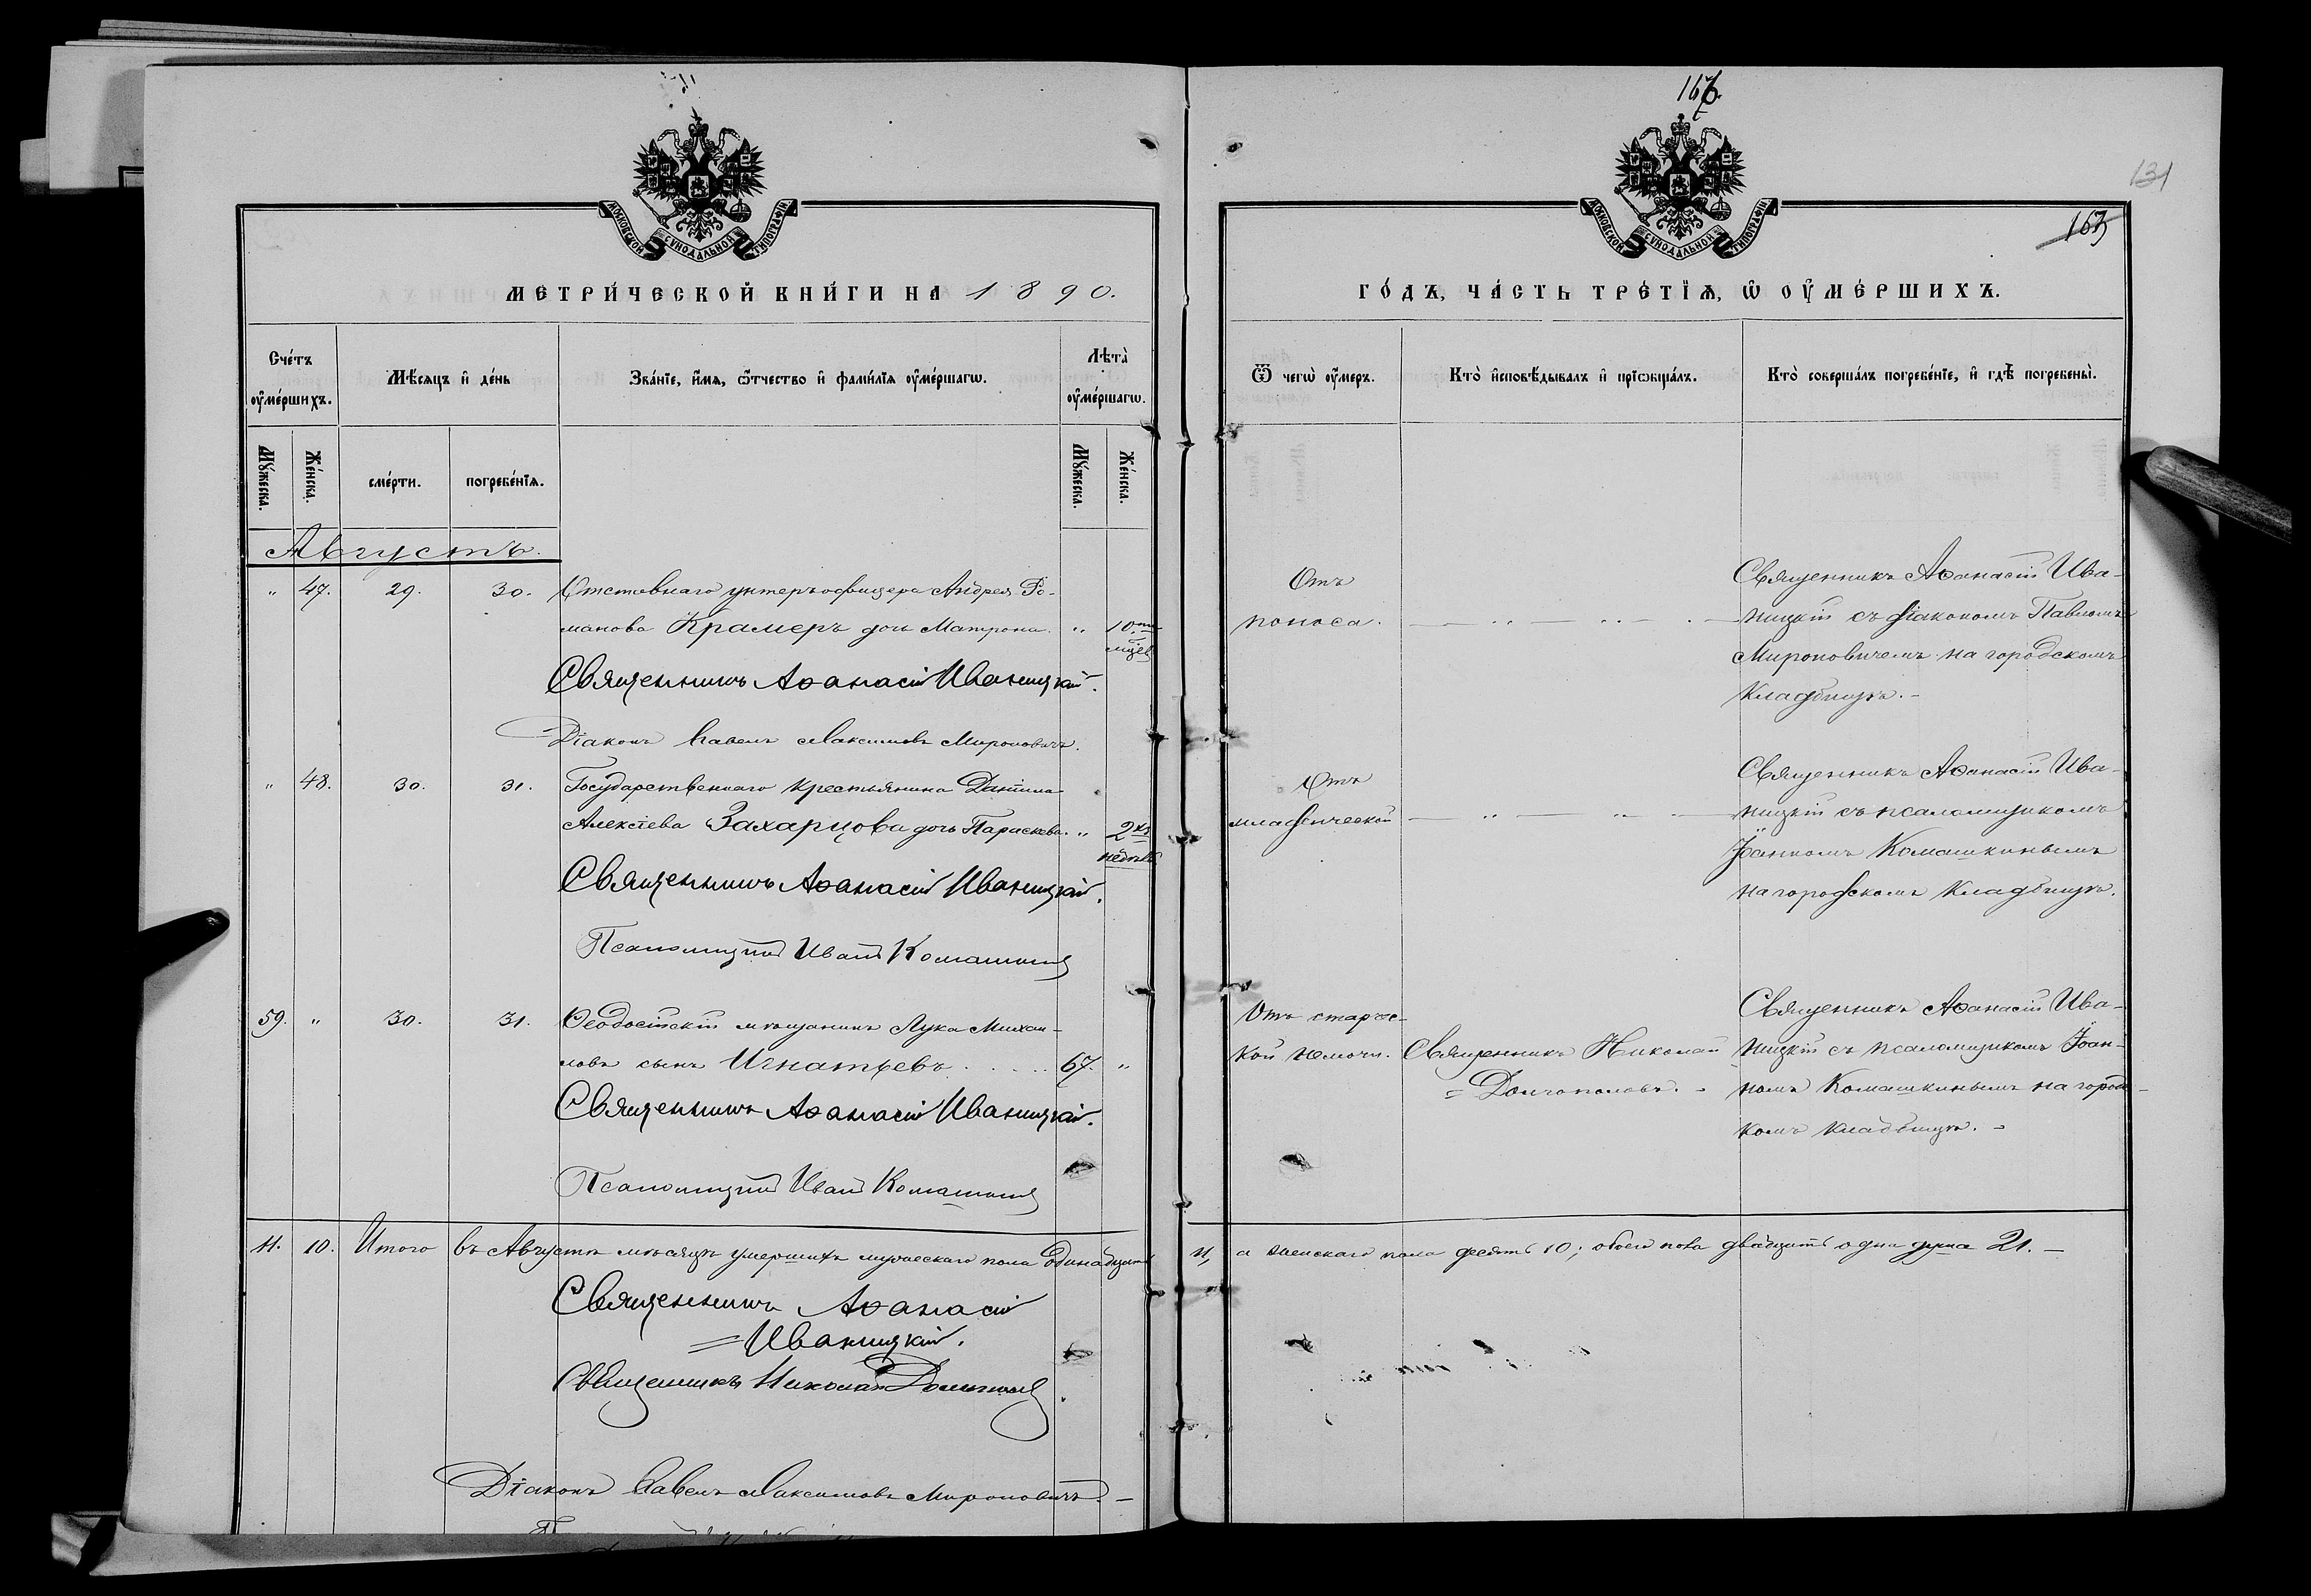 167.
131
165
МОСКОВСКОЙ СУНОДАЛЬНОЙ ТИПОГРАФІИ
МОСКОВСКОЙ СУНОДАЛЬНОЙ ТИПОГРАФІИ
МЕТРИ́ЧЕСКОЙ КНИ́ГИ НА 1890.
ГО́ДЪ, ЧА́СТЬ ТРЕ́ТІѦ, Ѽ ОУ҆МЕ́РШИХЪ.
Сче́тъ оу҆ме́ршихъ.
Мѣ́сяцъ и҆ де́нь
Зва́нїе, и҆́мѧ, ѻ҆́тчество и҆ фами́лїѧ оу҆ме́ршагѡ.
Лѣта̀ оу҆ме́ршагѡ.
Ѿ чегѡ̀ оу҆́меръ.
Кто̀ и҆сповѣ́дывалъ и҆ прїѡбща́лъ.
Кто̀ соверша́лъ погребе́нїе, и҆ гдѣ̀ погребены̀.
Мꙋ́жеска.
Же́нска.
сме́рти.
погребе́нїѧ.
Мꙋ́жеска.
Же́нска.
Августъ.
" 47. 29. 30. Отставнаго унтеръ-офицера Андрея Ро-
манова Крамеръ дочь Матрона. " 10ти
мцев
Священникъ Аѳанасій Иваницкій.
Діаконъ Павелъ Максимовъ Мироновичъ.
Отъ
поноса.
Священникъ Аѳанасій Ива-
ницкій съ діакономъ Павломъ
Мироновичемъ на городскомъ
кладбищѣ.-
" 48. 30. 31. Государственнаго крестьянина Даніила
Алексѣева Захарцова дочь Параскева. " 2хъ
недѣль
Священникъ Аѳанасій Иваницкій.
Псаломщикъ Иванъ Комашкинъ
Отъ
младенческой
Священникъ Аѳанасій Ива-
ницкій съ псаломщикомъ
Іоанномъ Комашкинымъ
на городскомъ кладбищѣ.
59. " 30. 31. Ѳеодосійскій мѣщанинъ Лука Михаи-
ловъ сынъ Игнатьевъ..... 67. "
Священникъ Аѳанасій Иваницкій.
Псаломщикъ Иванъ Комашкинъ
Отъ старчес-
кой немочи.
Священникъ Николай
= Долгополовъ. -
Священникъ Аѳанасій Ива-
ницкій съ псаломщикомъ Іоан-
номъ Комашкинымъ на город-
комъ кладбищѣ. -
11. 10. Итого въ Августѣ мѣсяцѣ умершихъ мужескаго пола одинадцать
11, а женскаго пола десять 10; обоего пола двадцать одна душа 21. -
Священникъ Аѳанасій
= Иваницкій.
Священникъ Николай Долгополовъ.
Діаконъ Павелъ Максимовъ Мироновичъ. -